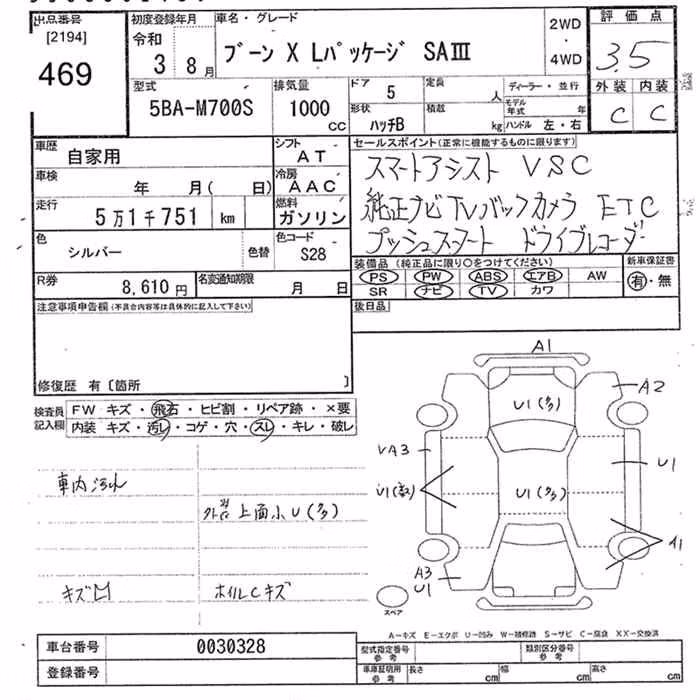 出品番号
[2194]
469
初度登録年月
令和
3 8月
車名・グレード
ブーン X Lパッケージ SAⅢ
2WD
・
4WD
評価点
3.5
外装 内装
C C
型式
5BA-M700S
排気量
1000
CC
ドア
5
定員
人
ディーラー・並行
形状
ハッチB
積載
kg
モデル年式
年
ハンドル 左・右
車歴
自家用
シフト
AT
車検
年 月( 日)
冷房
AAC
走行
5万1千751 km
燃料
ガソリン
色
シルバー
色替
色コード
S28
R券
8,610円
名変通知期限
月 日
セールスポイント(正常に機能するものに限ります)
スマートアシスト VSC
純正ナビTVバックカメラ ETC
プッシュスタート ドライブレコーダー
装備品(純正品に限り〇をつけてください)
新車保証書
PS PW ABS エアB AW
有・無
SR ナビ TV カワ
後日品
注意事項申告欄(不具合内容等は具体的に記入して下さい)
修復歴 有〔箇所 〕
検査員
記入欄
FW キズ・飛石・ヒビ割・リペア跡・×要
内装 キズ・汚レ・コゲ・穴・スレ・キレ・破レ
車内汚れ
外装上面小U(多)
キズ凹
ホイルCキズ
A1
A2
U1(多)
VA3
U1
U1(多)
A1
A3
U1
スペア
A-キズ E-エクボ U-凹み W-補修跡 S-サビ C-腐食 XX-交換済
車台番号
0030328
登録番号
型式指定番号
参考
類別区分番号
参考
車庫証明用
参考
長さ cm
幅 cm
高さ cm